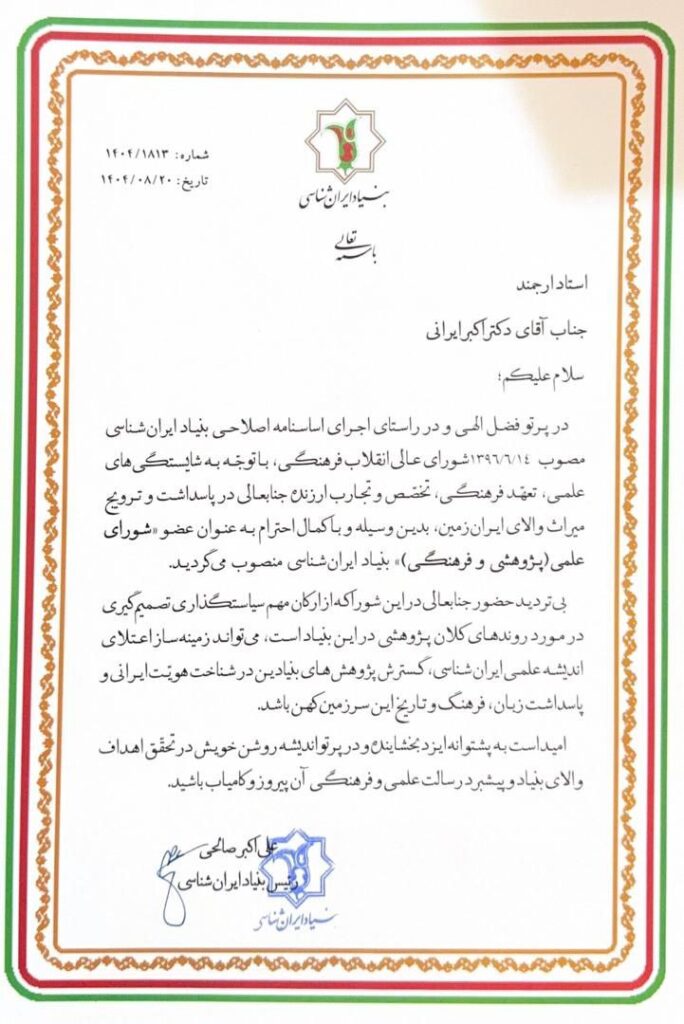 شماره: ۱۴۰۴/۱۸۱۳
تاریخ: ۱۴۰۴/۰۸/۲۰
بنیاد ایران‌شناسی
باسمه تعالی
استاد ارجمند
جناب آقای دکتر اکبر ایرانی
سلام علیکم؛
در پرتو فضل الهی و در راستای اجرای اساسنامه اصلاحی بنیاد ایران‌شناسی
مصوب ۱۳۹۶/۶/۱۴ شورای عالی انقلاب فرهنگی، با توجّه به شایستگی‌های
علمی، تعهّد فرهنگی، تخصّص و تجارب ارزنده جنابعالی در پاسداشت و ترویج
میراث والای ایران زمین، بدین وسیله و با کمال احترام به عنوان عضو «شورای
علمی (پژوهشی و فرهنگی)» بنیاد ایران‌شناسی منصوب می‌گردید.
بی‌تردید حضور جنابعالی در این شورا که از ارکان مهم سیاستگذاری تصمیم‌گیری
در مورد روندهای کلان پژوهشی در این بنیاد است، می‌تواند زمینه‌ساز اعتلای
اندیشه علمی ایران‌شناسی، گسترش پژوهش‌های بنیادین در شناخت هویّت ایرانی و
پاسداشت زبان، فرهنگ و تاریخ این سرزمین کهن باشد.
امید است به پشتوانه ایزد بخشاینده و در پرتو اندیشه روشن خویش در تحقّق اهداف
والای بنیاد و پیشبرد رسالت علمی و فرهنگی آن پیروز و کامیاب باشید.
علی اکبر صالحی
رئیس بنیاد ایران شناسی
بنیاد ایران‌شناسی